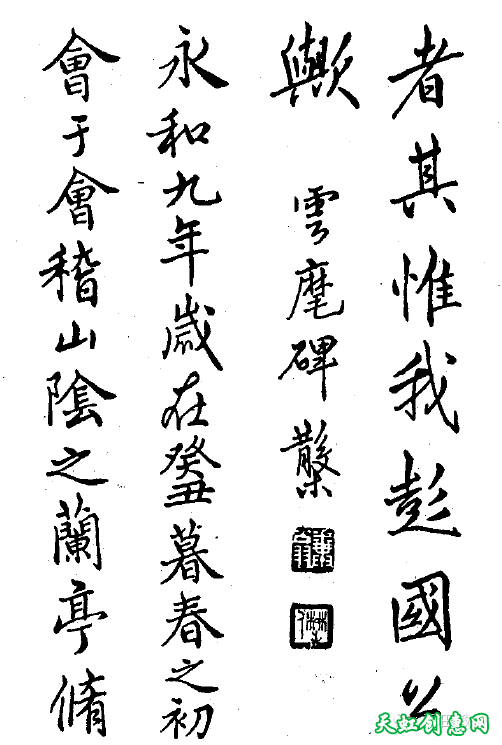 者其惟我彭國公
歟
雲麾碑 檠
永和九年歲在癸丑暮春之初
會于會稽山陰之蘭亭脩
天虹创意网